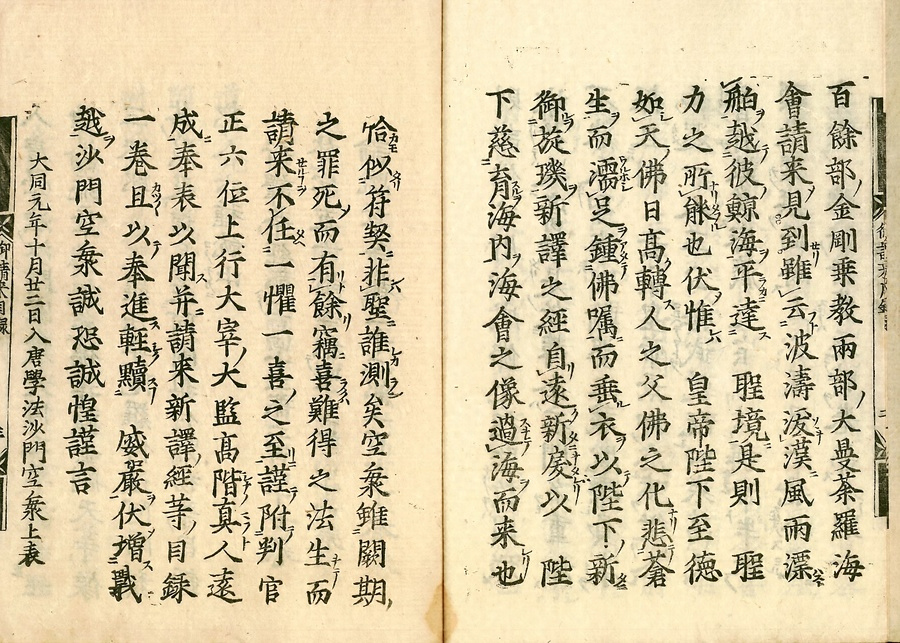 百餘部金剛乗教兩部大曼荼羅海
會請来見到雖云波濤泼漢風雨漂
舶越彼鯨海平達聖境是則聖
力之所能也伏惟皇帝陛下至德
如天佛日高轉人之父佛之化悲蒼
生而濡足鍾佛嘱而垂衣以陛下新
御旋璣新譯之經自遠新戾以陛
下慈育海内海會之像過海而来也
恰似符契非聖誰測矣空海雖闕期
之罪死而有餘竊喜難得之法生而
請来不任一懼一喜之至謹附判官
正六位上行大宰大監高階真人遠
成奉表以聞并請来新譯經等目録
一卷且以奉進輕黷威嚴伏增戰
越沙門空海誠恐誠惶謹言
大同元年十月廿二日入唐學法沙門空海上表
御請来目録